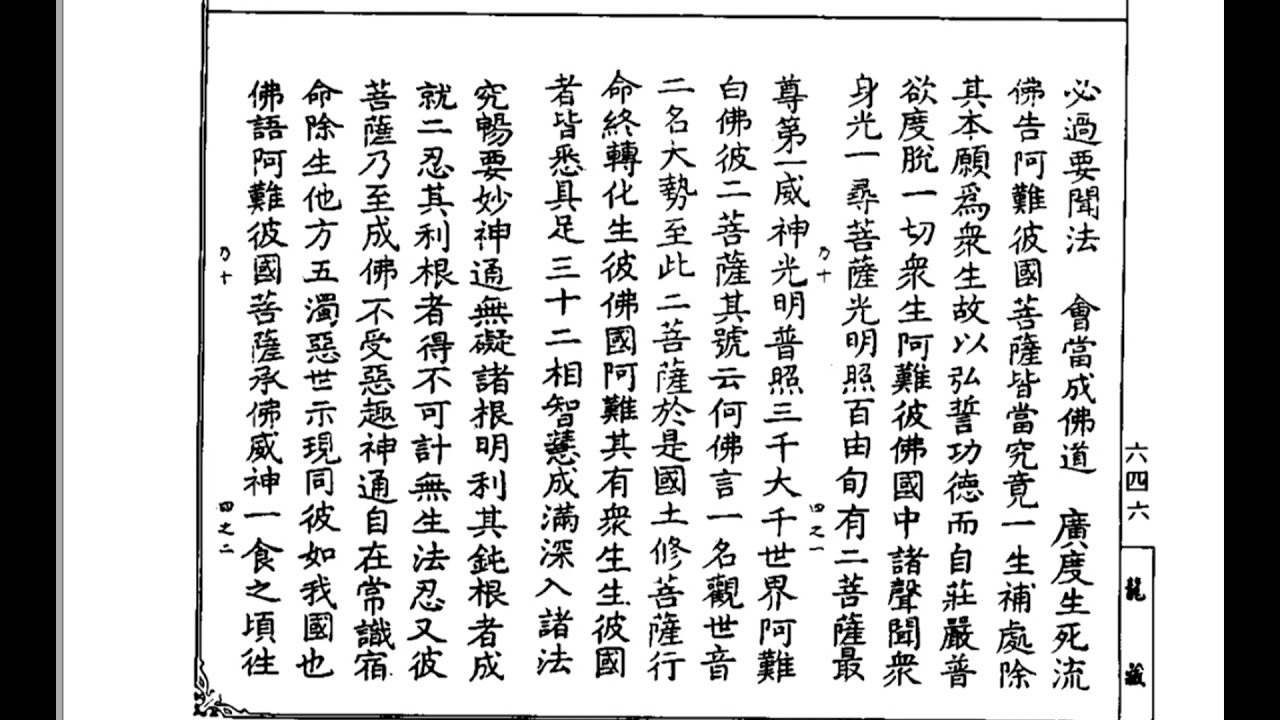 六四六
龍藏
必過要聞法　會當成佛道　廣度生死流
佛告阿難彼國菩薩皆當究竟一生補處除
其本願爲衆生故以弘誓功德而自莊嚴普
欲度脫一切衆生阿難彼佛國中諸聲聞衆
身光一尋菩薩光明照百由旬有二菩薩最
乃十
四之一
尊第一威神光明普照三千大千世界阿難
白佛彼二菩薩其號云何佛言一名觀世音
二名大勢至此二菩薩於是國土修菩薩行
命終轉化生彼佛國阿難其有衆生生彼國
者皆悉具足三十二相智慧成滿深入諸法
究暢要妙神通無礙諸根明利其鈍根者成
就二忍其利根者得不可計無生法忍又彼
菩薩乃至成佛不受惡趣神通自在常識宿
命除生他方五濁惡世示現同彼如我國也
佛語阿難彼國菩薩承佛威神一食之頃往
乃十
四之二